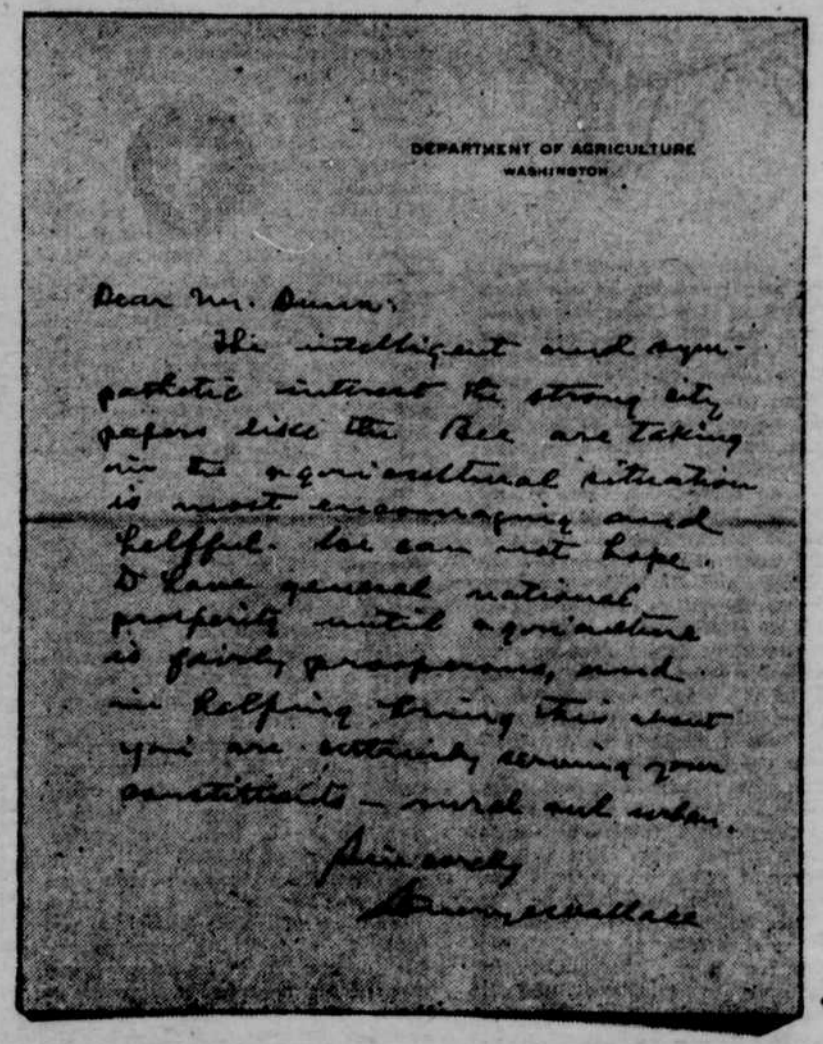 DEPARTMENT OF AGRICULTURE
WASHINGTON
Dear Mr. Dunn:
The intelligent and sym-
pathetic interest the strong city
papers like the Bee are taking
in the agricultural situation
is most encouraging and
helpful. We can not hope
to have general national
prosperity until agriculture
is fairly prosperous, and
in helping bring this about
you are certainly serving your
constituents — rural and urban.
Sincerely
Henry C Wallace